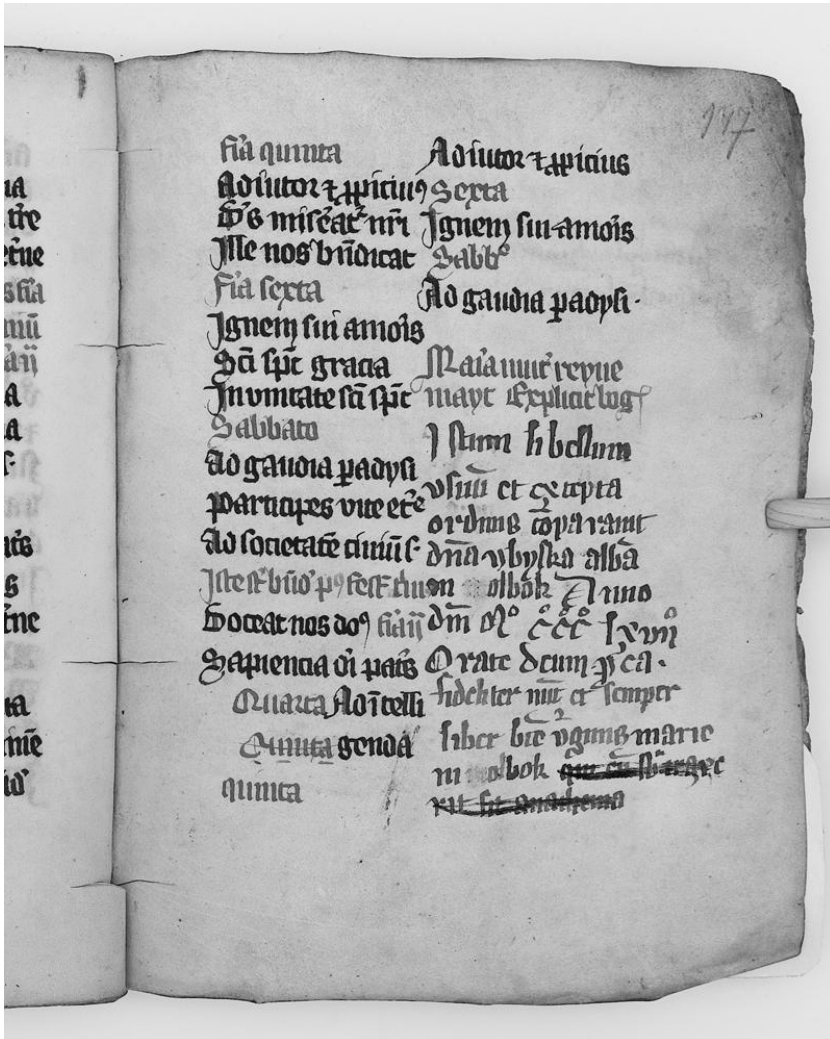 177
fīa quinta
Adiutor ⁊ ꝓpicius
D's mis'eat' nr̄i
Ille nos bn̄dicat
fīa sexta
Ignem sui amoīs
Sc̄i sp̄c gracia
In vnitate sc̄i sp̄c
Sabbato
Ad gaudia ꝑadysi
participes vite et'e
Ad societatē ciuiū s·
Doceat nos do⁹ fīa ij
Sapiencia d'i pat's
Quarta Ad ītelli
Quinta genda
quinta
Adiutor ⁊ ꝓpicius
Sexta
Ignem sui amoīs
Sabb°
Ad gaudia ꝑadysi·
Maīa nut' reyne
mayt Explicit log
Istum libellum
vsui et
ordinis cōparauit
dn̄a ybyska albā
in olbok Anno
dn̄i mͦ cͦcͦcͦ lxviiͦ
Orate deum ꝑ ea·
fideliter nūc et semper
liber bt̄e v̓ginis marie
in olbok qui eū
rit sit anathema